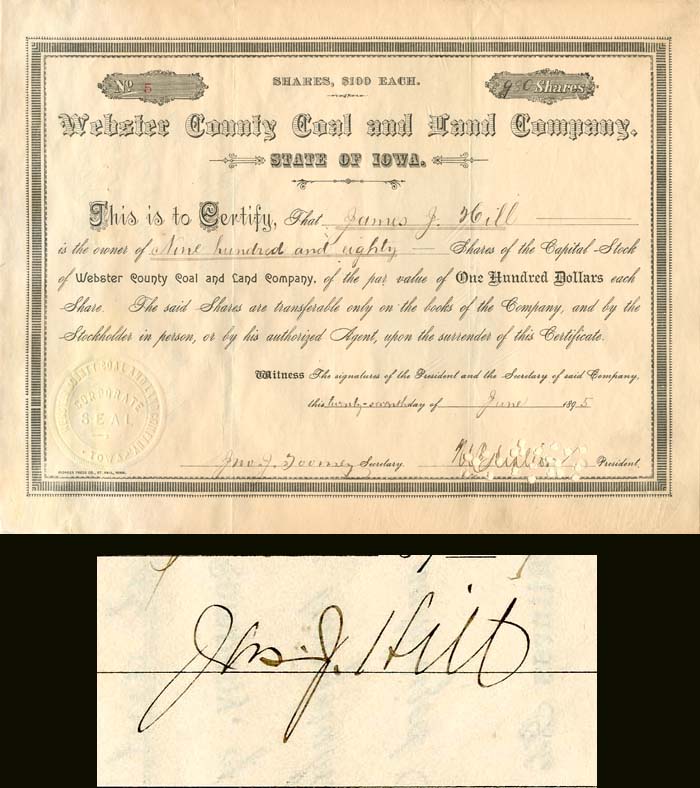 SHARES, $100 EACH.
No 5
980 Shares
Webster County Coal and Land Company.
STATE OF IOWA.
This is to Certify, That James J. Hill
is the owner of Nine hundred and eighty Shares of the Capital Stock
of Webster County Coal and Land Company, of the par value of One Hundred Dollars each
Share. The said Shares are transferable only on the books of the Company, and by the
Stockholder in person, or by his authorized Agent, upon the surrender of this Certificate.
Witness The signatures of the President and the Secretary of said Company,
this twenty-seventh day of June 1895
CORPORATE
SEAL
IOWA
Jno. J. Toomey Secretary. President.
PIONEER PRESS CO., ST. PAUL, MINN.
Jas. J. Hill